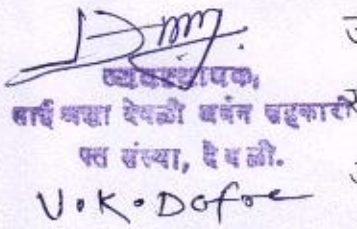 व्यवस्थापक,
साई श्रद्धा देवळी अर्बन सहकारी
पत संस्था, देवळी.
V.K.Dofoe